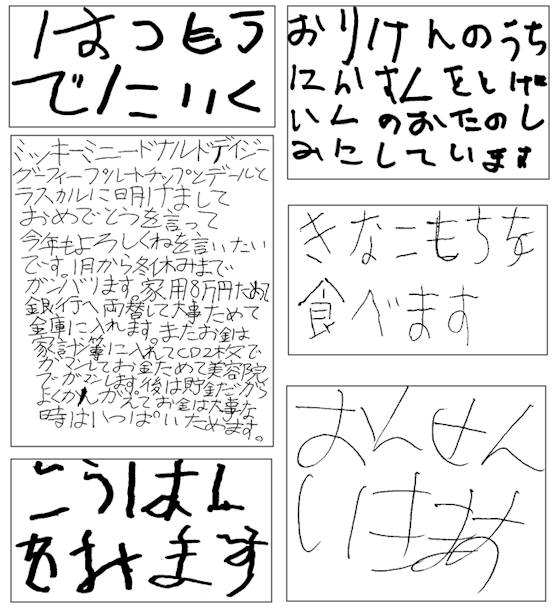 はつもう
でにいく
ミッキーミニードナルドデイジー
グーフィープルートチップとデールと
ラスカルに明けまして
おめでとうを言って
今年もよろしくねを言いたい
です。1月から冬休みまで
ガンバリます。家用8万円ためて
銀行へ両替して大事ためて
金庫に入れます。またお金は
家計簿に入れてCD2枚で
ガマンしてお金ためて美容院
でガマンします。後は貯金だから
よくかんがえてお金は大事な
時はいっぱいためます。
ごうはん
をおけます
おりけんのうち
にんずんをとげ
いんのおたのし
みにしています
きなこもちを
食べます
おんせん